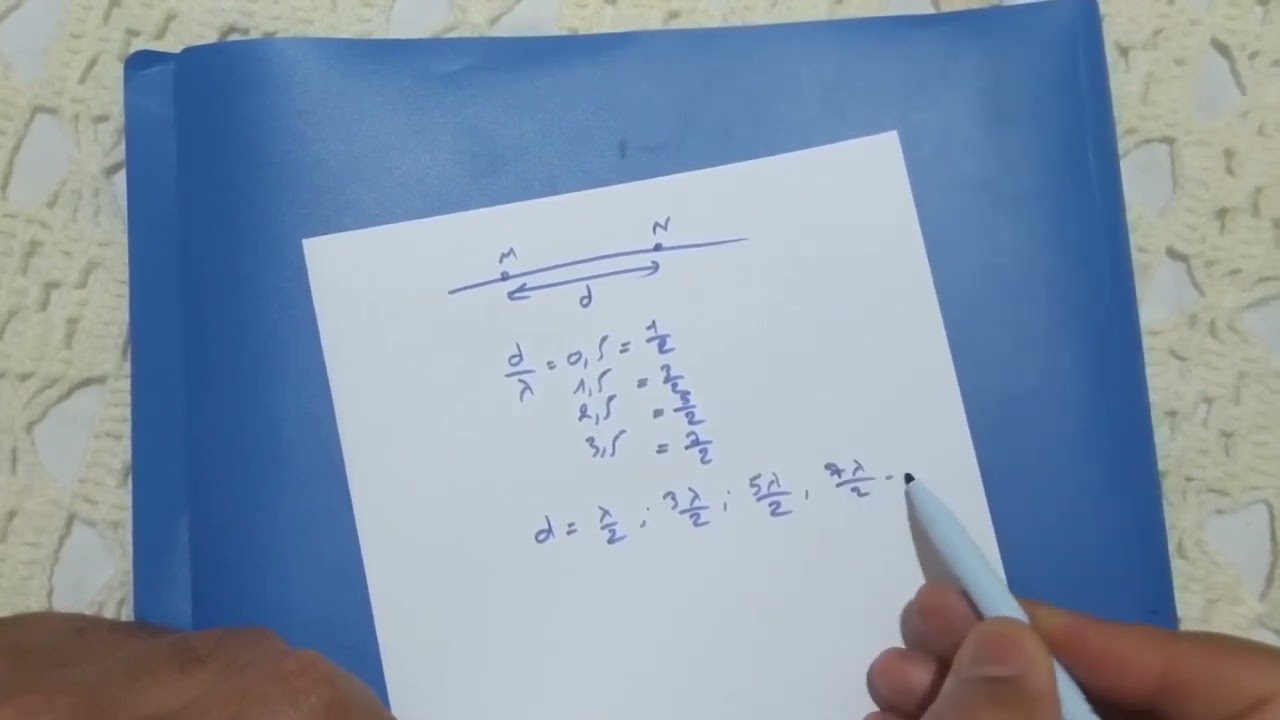 M N
d
d/λ = 0,5 = 1/2
1,5 = 3/2
2,5 = 5/2
3,5 = 7/2
d = λ/2 ; 3λ/2 ; 5λ/2 , 7λ/2 -